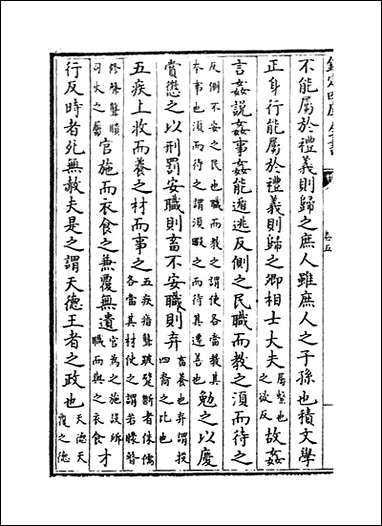 欽定四庫全書
卷五
不能屬於禮義則歸之庶人雖庶人之子孫也積文學
正身行能屬於禮義則歸之卿相士大夫屬繫也之欲反故姦
言姦說姦事姦能遁逃反側之民職而教之須而待之
反側不安之民也職而教之謂使各當教其本事也須而待之謂須暇之而待其遷善也勉之以慶
賞懲之以刑罰安職則畜不安職則棄畜養也棄謂投四裔之比也
五疾上收而養之材而事之五疾瘖聾跛躄斷者侏儒各當其材使之謂若矇瞽
修聲聾聵司火之屬官施而衣食之兼覆無遺官為之施設所職而與之衣食才
行反時者死無赦夫是之謂天德王者之政也天德天覆之德